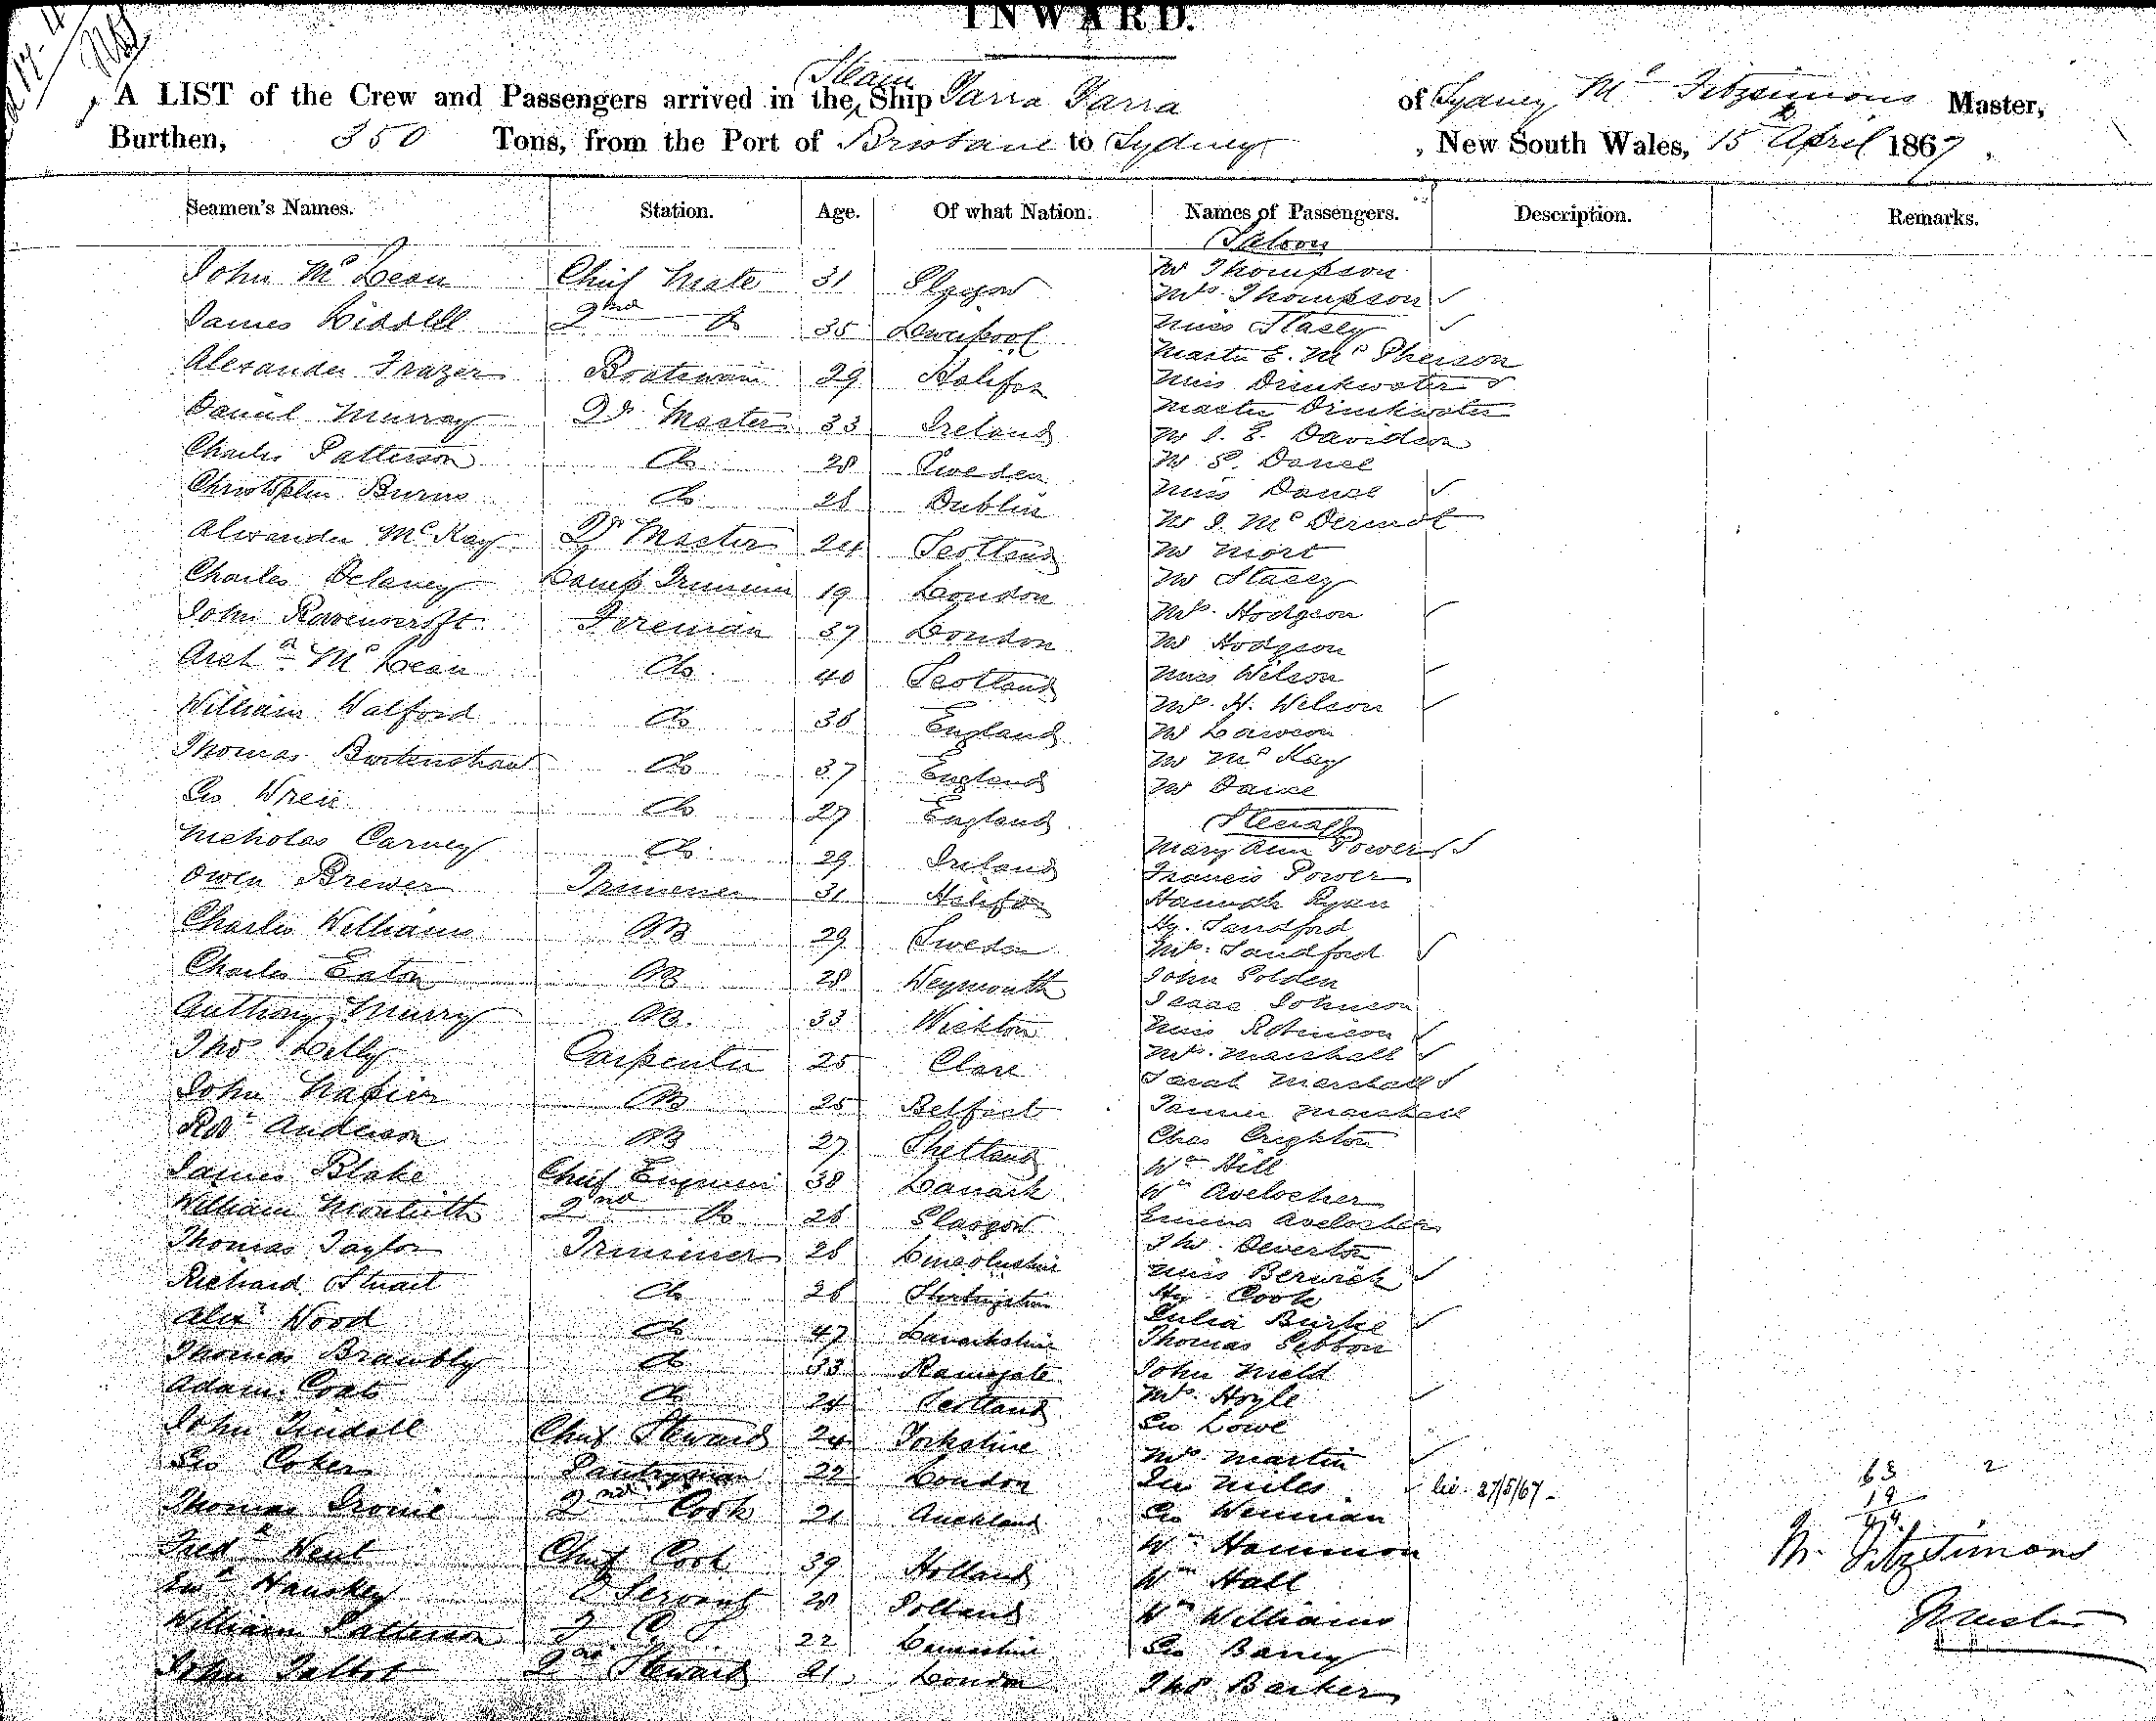 INWARD.
A LIST of the Crew and Passengers arrived in the Steam Ship Yarra Yarra of Sydney Mc Fitzsimons Master,
Burthen, 350 Tons, from the Port of Brisbane to Sydney, New South Wales, 15th April 1867,
Seamen's Names. Station. Age. Of what Nation. Names of Passengers. Description. Remarks.
Saloon
John McLean Chief Mate 31 Glasgow Mr Thompson
Mrs. Thompson
James Liddell 2nd Do 35 Liverpool Miss Stacey
Alexander Frazer Boatswain 29 Halifax Master E. McPherson
Miss Drinkwater
Daniel Murray Qr Master 33 Ireland Master Drinkwater
Mr J. E. Davidson
Charles Patterson Do 28 Sweden Mr S.
Christopher Burns Do 28 Dublin Miss
Mr J. McDermot
Alexander McKay Qr Master 24 Scotland Mr Mort
Charles Delaney Lamp Trimmer 19 London Mr Stacey
John Ravenscroft Fireman 37 London Mrs. Hodgson
Mr Hodgson
Archd McLean Do 40 Scotland Miss Wilson
William Walford Do 36 England Mrs. H. Wilson
Mr Lawson
Thomas Burtenshaw Do 37 England Mr McKay
Mr
Geo Wren Do 27 England
Steerage
Nicholas Carney Do 29 Ireland Mary Ann Power
Francis Power
Owen Brewer Trimmer 31 Halifax Hannah Ryan
Charles Williams AB 29 Sweden Hy. Sandford
Mrs. Sandford
Charles Eaton AB 28 Weymouth John Golden
Isaac Johnson
Anthony Murry AB. 33 Miss Robinson
Thos Lilly Carpenter 25 Clare Mrs. Marshall
Sarah Marshall
John Napier AB 25 Belfast Marshall
Robt Anderson AB 27 Shetland Chas Crighton
Wm Hill
James Blake Chief Engineer 38 Lanark Wm Avelocher
William Monteith 2nd Do 26 Glasgow Emma Avelocher
Thomas Taylor Trimmer 28 Lincolnshire Thos. Deverton
Miss Berwick
Richard Stuart Do 26 Hy. Cook
Alexr Wood Do 47 Lanarkshire Julia Burke
Thomas Gibbon
Thomas Brambly Do 33 Ramsgate John Nield
Adam Coats Do 24 Scotland Mrs. Hoyle
John Tindall Chief Steward 24 Yorkshire Geo Lowe
Mrs Martin
Geo Coker Pantryman 22 London Miles lic. 27/5/67
Thomas 2nd Cook 21 Auckland Geo Wenman
Wm Hammon
Fredk Went Chief Cook 39 Holland Wm Hall
Hanskey Servant 28 Polland Wm Williams
William Patterson 22 Geo Barrey
John Talbot 2nd Steward 21 London Thos Barker
63 2
19
M. Fitzsimons
Master